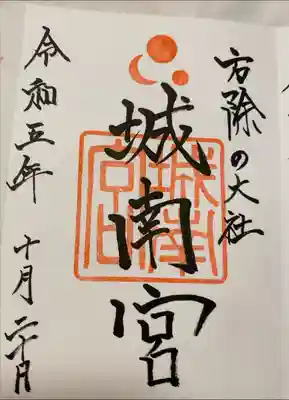 方除の大社
城南宮
城南宮印
令和五年 十月二十日